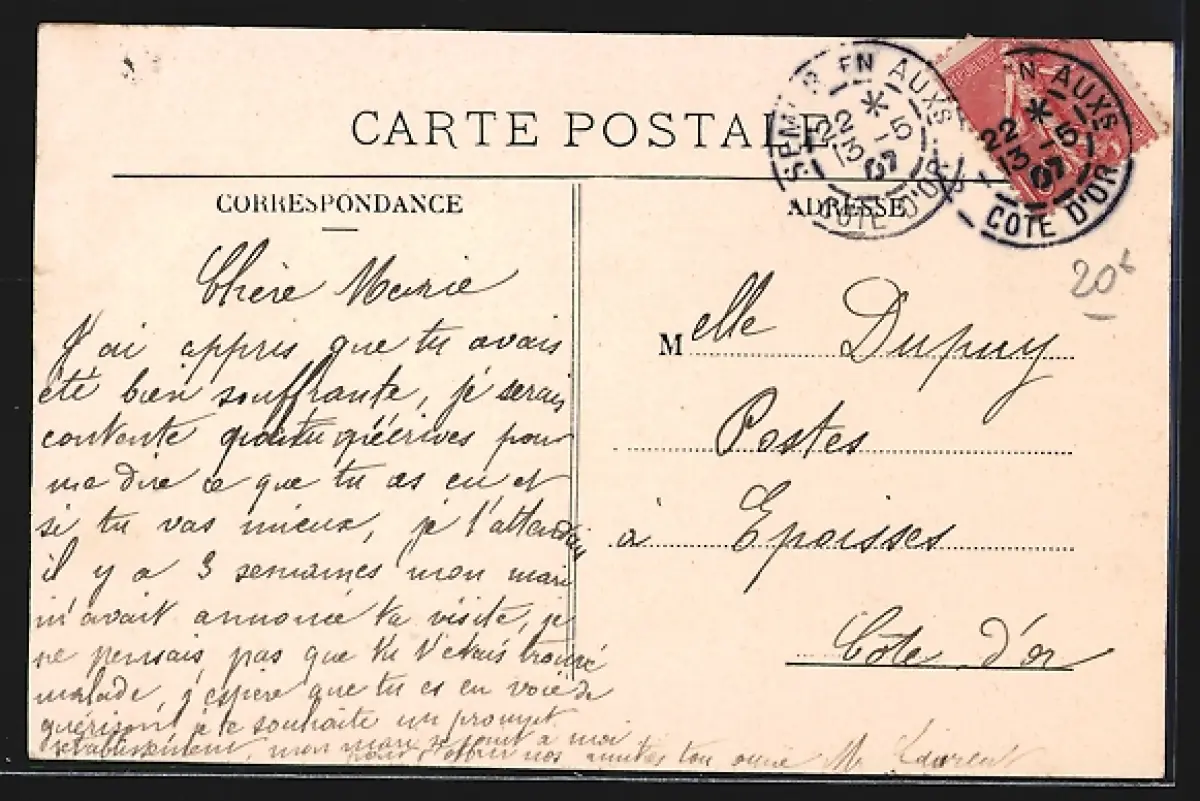 CARTE POSTALE
CORRESPONDANCE
Chère Marie
J'ai appris que tu avais
été bien souffrante, je serais
contente que tu m'écrives pour
me dire ce que tu as eu et
si tu vas mieux, je t'attendais
il y a 3 semaines mon mari
m'avait annoncé ta visite, je
ne pensais pas que tu t'étais trouvé
malade, j'espère que tu es en voie de
guérison, je te souhaite un prompt
rétablissement, mon mari se joint à moi
pour t'offrir nos amitiés ton amie M. Laurent
SEMUR EN AUXS
22 *
13 -5
07
COTE D'OR
EN AUXS
22 *
13 -5
07
COTE D'OR
ADRESSE
20f
Melle Dupuy
Postes
à Epoisses
Côte d'or